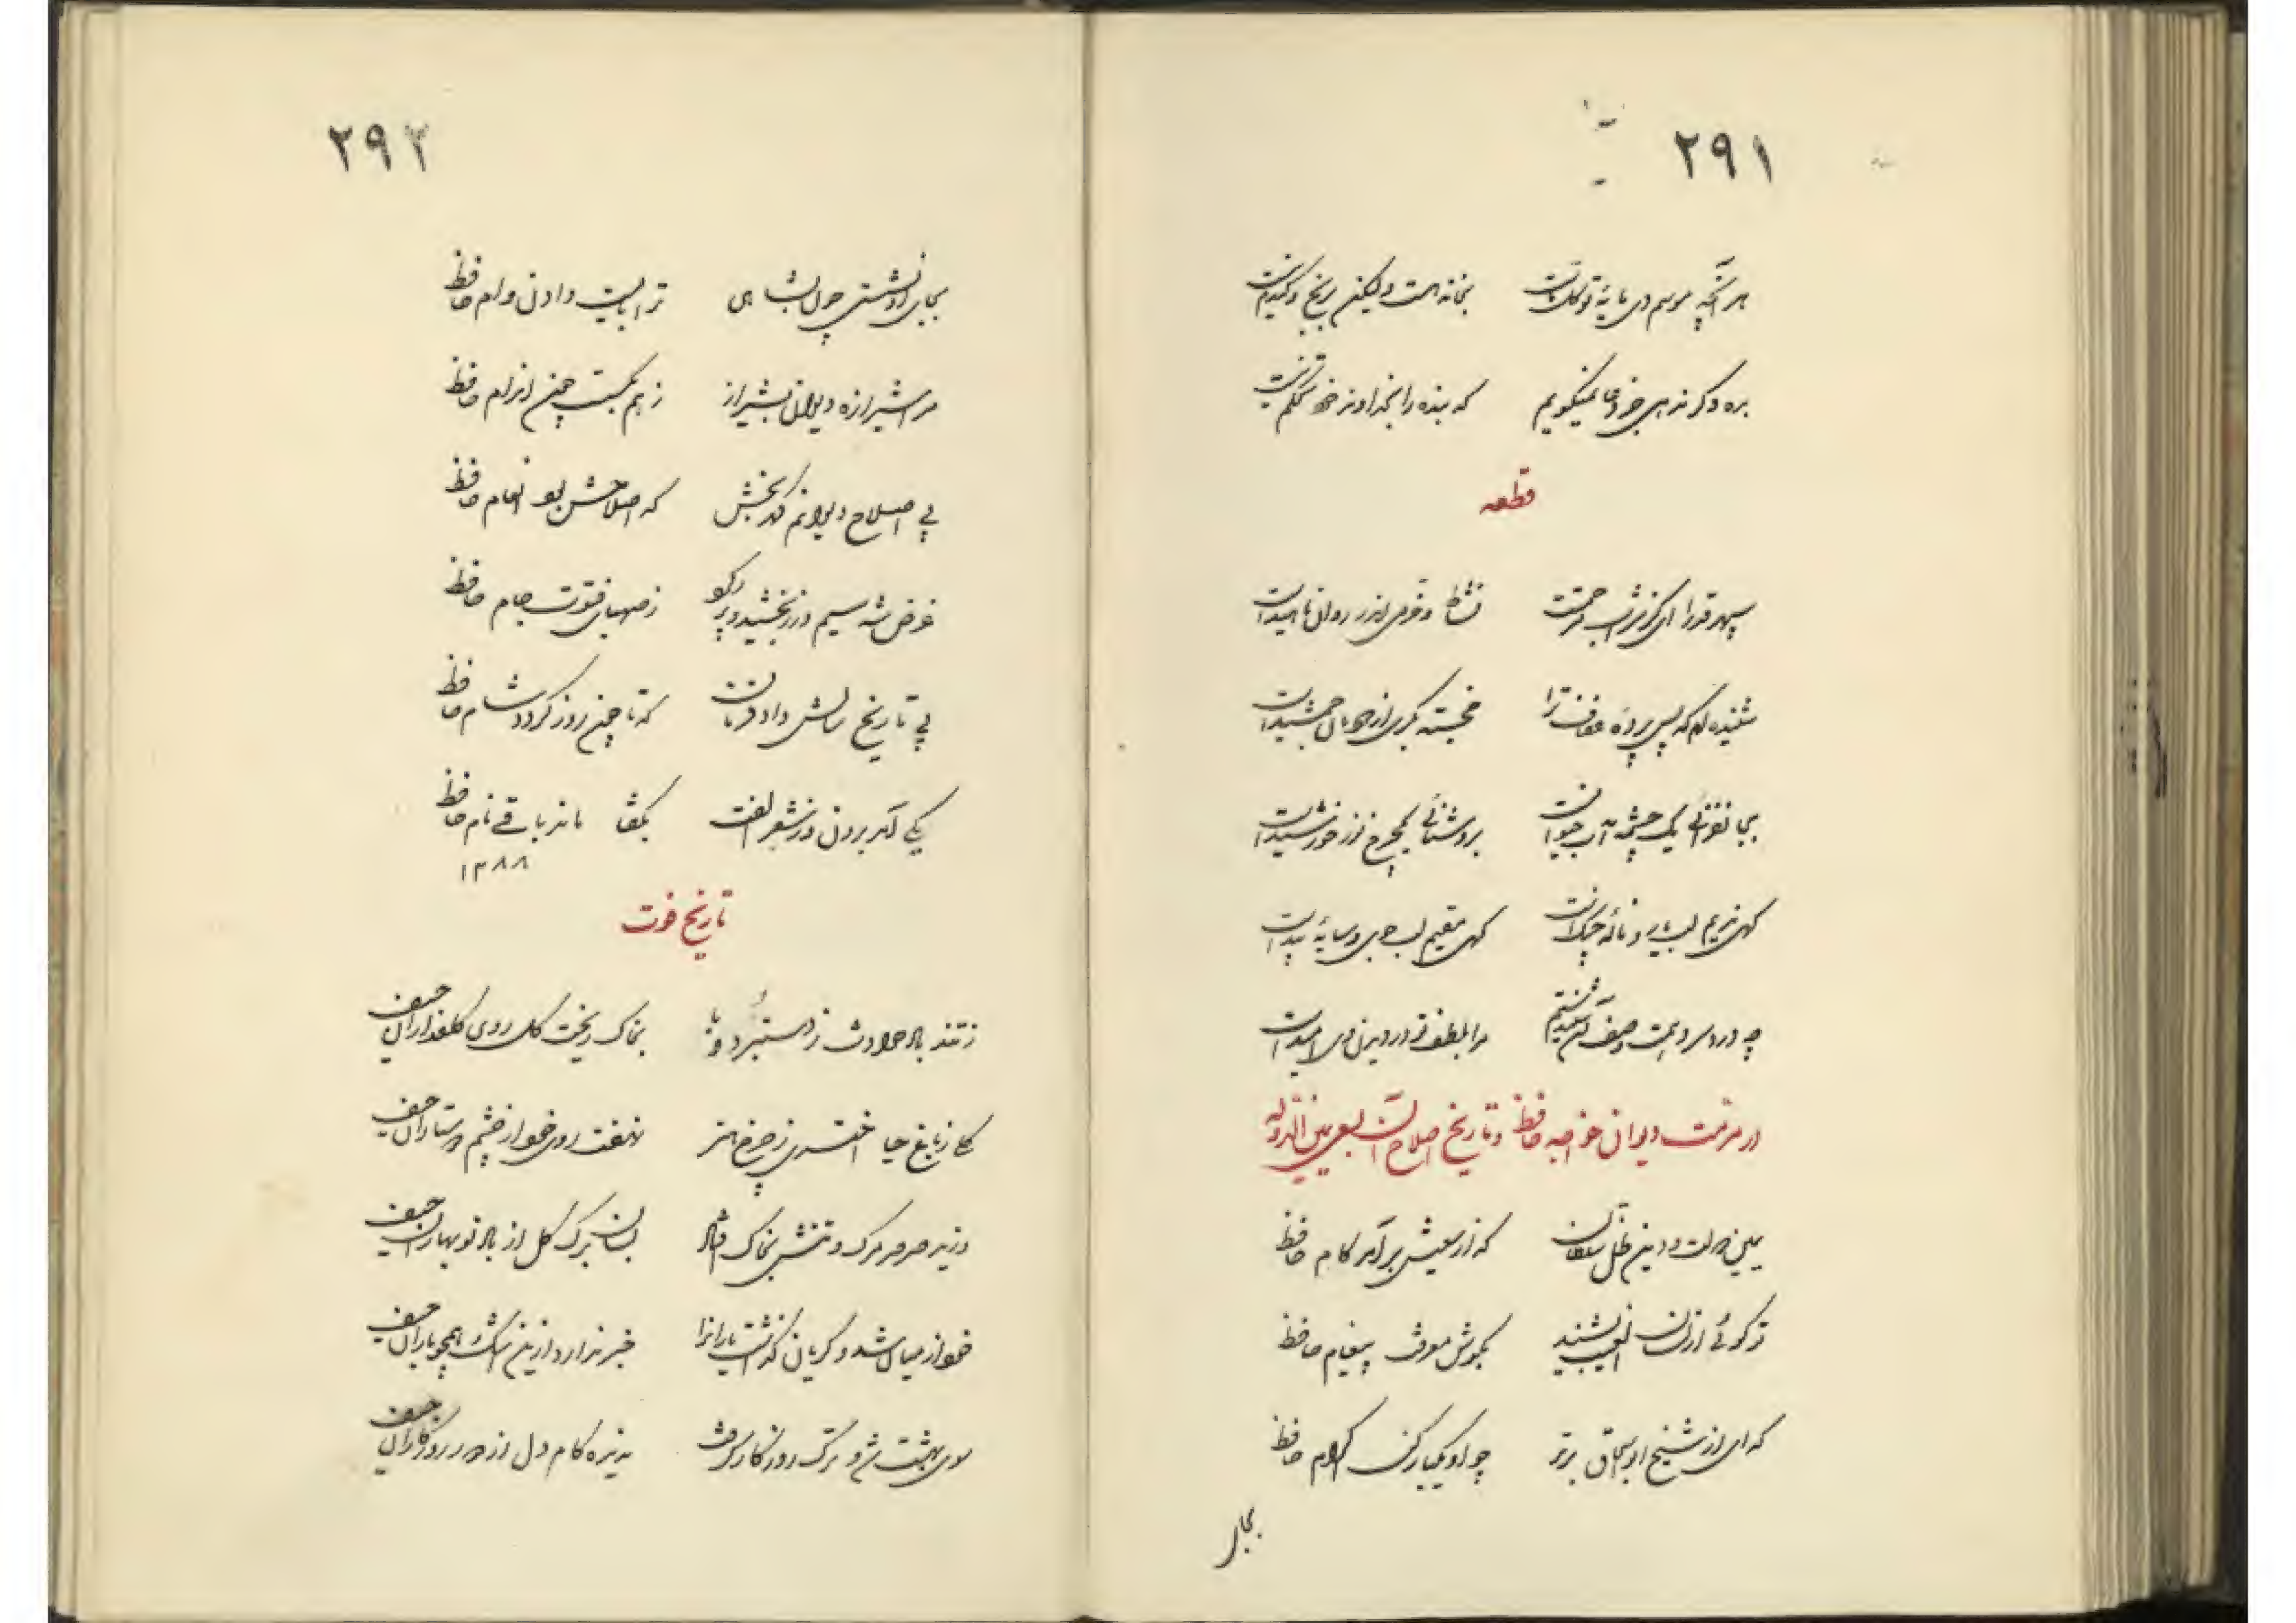 ۲۹۱
هر آنچه موسم دی مایهٔ توکل است بخانه هست ولیکن برنج
بده وگرنه هجی خود نمیگویم که بنده را بخداوند خود تکلم نیست
قطعه
سپهر قدرا ای کز شراب مرحمتت نشاط و خرمی اندر روان ناهید است
شنیده‌ام که پس پردهٔ عفاف ترا خجسته بکری از جمال جمشید است
بجانفزائی یک چشمه آب حیوان است بروشنائی یکچرخ نور خورشید است
کهی ندیم لب یار و نالهٔ چنک است کهی مقیم لب جوی و سایهٔ بید است
چه درد سر دهمت وصف آن شنیدستم مرا بلطف تو در دیدن وی امید است
در مرمت دیوان خواجه حافظ و تاریخ اصلاح آن بسعی یمین الدوله
یمین دولت و دین ظل سلطان که از سعیش برآمد کام حافظ
تو کوئی از لسان الغیب بشنید بکوش معرفت پیغام حافظ
که ای از شیخ ابو سحاق برتر چو او یکباره کن اکرام حافظ
بجای
۲۹۲
بجای او نشستی چون بشاهی ترا بایست دادن وام حافظ
مر شیرازه دیوان بشیراز ز هم بکسست چون اندام حافظ
پی اصلاح دیوانم کدر بخش که اصلاحش بود انعام حافظ
غرض شه سیم و زر بخشید و پر کرد ز صهبای فتوت جام حافظ
پی تاریخ سالش داد فرمان که تا چون روز کردد شام حافظ
یکی آمد برون در شعر و الفت بکفتا ماند باقی نام حافظ
۱۲۸۸
تاریخ فوت
ز تند باد حوادث ز دستبرد بخاک ریخت کل روی کلعذاران حیف
ز باغ حیا اختری ز چرخ هنر نهفت روی خود از چشم دوستاران حیف
وزید صرصر مرک و تنش بخاک افتاد بسان برک کل از باد نوبهاران حیف
خود از میان شد و کریان کذاشت یارانرا خبر ندارد ازین اشک همچو باران حیف
سوی بهشت شد و ترک روزکار کرفت ندیده کام دل از دور روزکاران حیف